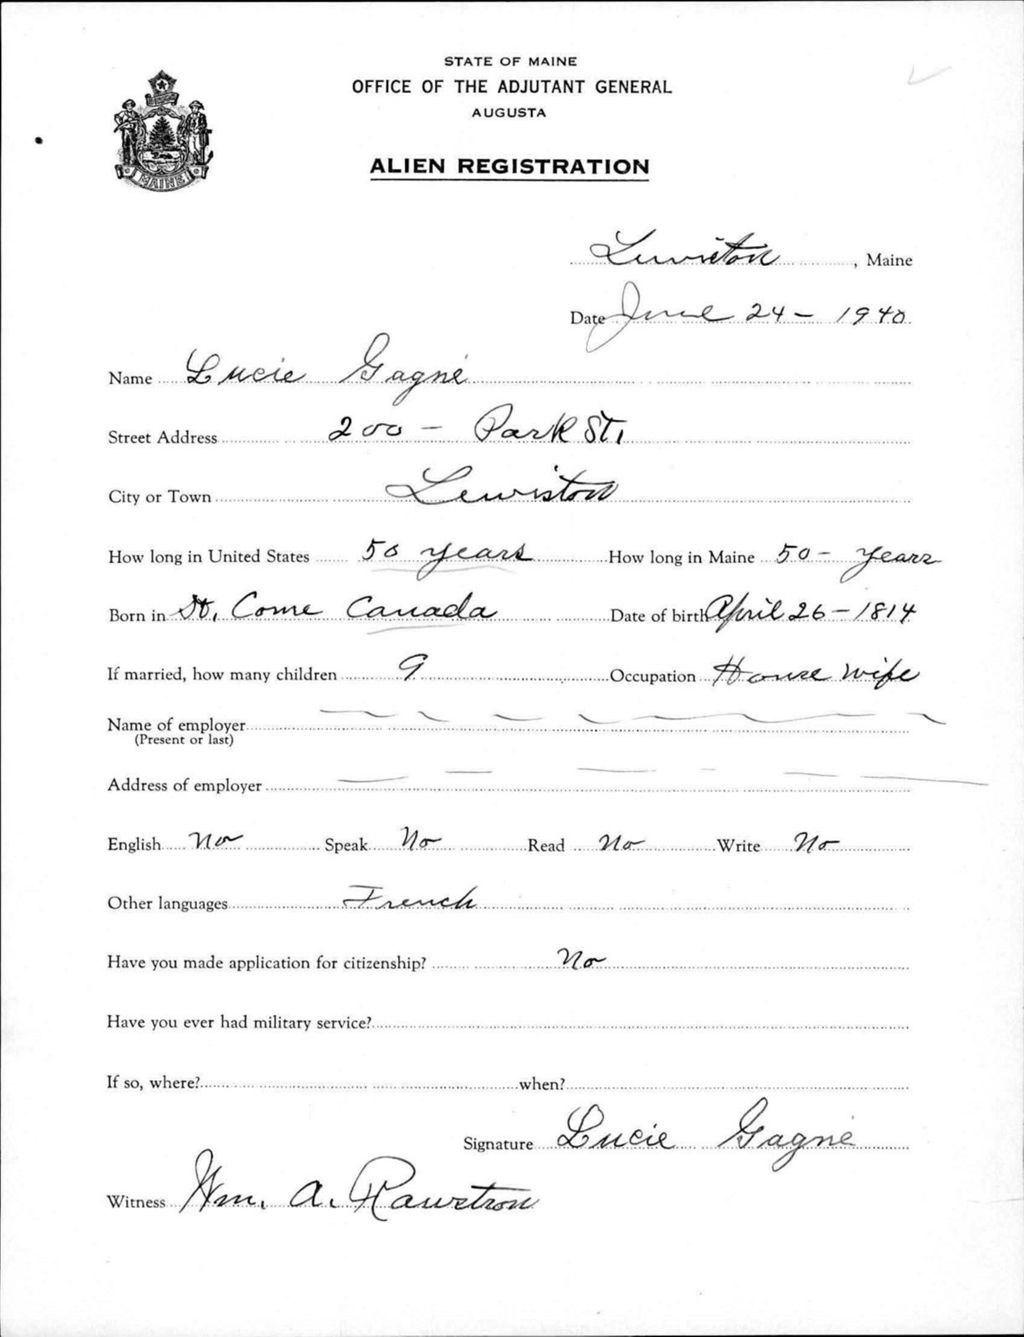 STATE OF MAINE
OFFICE OF THE ADJUTANT GENERAL
AUGUSTA
MAINE
ALIEN REGISTRATION
Lewiston, Maine
Date June 24 - 1940
Name Lucie Gagné
Street Address 200 - Park St.
City or Town Lewiston
How long in United States 50 years How long in Maine 50 - Years
Born in St. Come Canada Date of birth April 26 - 1814
If married, how many children 9 Occupation House wife
Name of employer
(Present or last)
Address of employer
English No Speak No Read No Write No
Other languages French
Have you made application for citizenship? No
Have you ever had military service?
If so, where? when?
Signature Lucie Gagné
Witness Wm. A. Rawstron